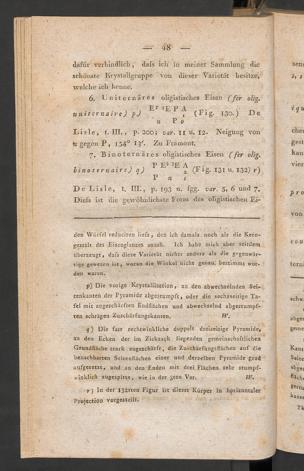 — 48 —
dafür verbindlich, daſs ich in meiner Sammlung die
schönste Krystallgruppe von dieser Varietät besitze,
welche ich kenne.
6. Uniternäres oligistisches Eisen (fer olig.
uniternaire) p) (Fig. 130.) De
u P o
Lisle, t. III., p. 200; var. 11 u. 12. Neigung von
u gegen P, 154° 13'. Zu Framont.
7. Binoternäres oligistisches Eisen (fer olig.
binoternaire) q) (Fig. 131 u. 132) r)
De Lisle, t. III, p. 193 u. fgg. var. 5, 6 und 7.
Dieſs ist die gewöhnlichste Form des oligistischen Ei-
den Würfel reduciren lieſs, den ich damals noch als die Kern-
gestalt des Eisenglanzes ansah. Ich habe mich aber seitdem
überzeugt, daſs diese Varietät nichts anders als die gegenwär-
tige gewesen ist, woran die Winkel nicht genau bestimmt wor-
den waren.
p) Die vorige Krystallisation, an den abwechselnden Sei-
tenkanten der Pyramide abgestumpft, oder die sechsseitige Ta-
fel mit zugeschärften Endflächen und abwechselnd abgestumpf-
ten schrägen Zuschärfungskanten. W.
q) Die fast rechtwinkliche doppelt dreiseitige Pyramide,
an den Ecken der im Zickzack liegenden gemeinschaftlichen
Grundfläche stark zugeschärft, die Zuschärfungsflächen auf die
benachbarten Seitenflächen einer und derselben Pyramide grad
aufgesetzt, und an den Enden mit drei Flächen sehr stumpf-
winklich zugespitzt, wie in der 3ten Var. W.
r) In der 132sten Figur ist dieser Körper in horizontaler
Projection vorgestellt.